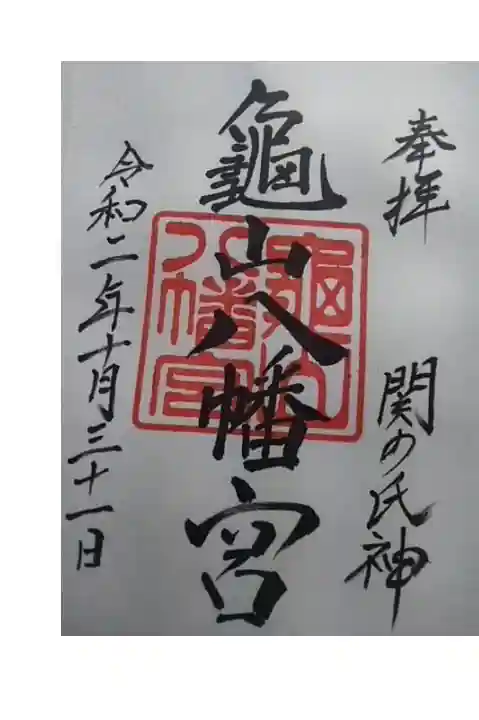 奉拝
関の氏神
龜山八幡宮
龜山
八幡宮
令和二年十月三十一日